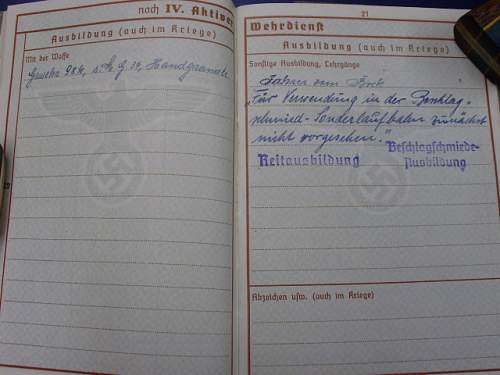 noch IV. Aktiver
Ausbildung (auch im Kriege)
Mit der Waffe
Gewehr 98k, s. M. G. 34, Handgranate
21
Wehrdienst
Ausbildung (auch im Kriege)
Sonstige Ausbildung, Lehrgänge
Fahrer vom Bock
"Für Verwendung in der Beschlag-
schmied-Sonderlaufbahn zunächst
nicht vorgesehen."
Reitausbildung
Beschlagschmiede-
Ausbildung
Abzeichen usw. (auch im Kriege)